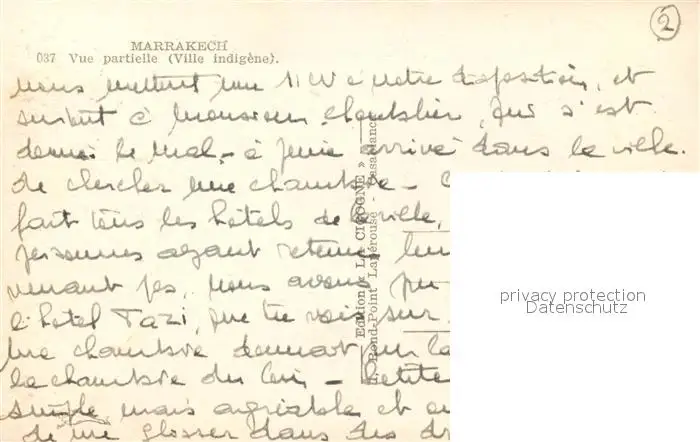 2
MARRAKECH
037 Vue partielle (Ville indigène).
nous mettent une à notre disposition, et
surtout à monsieur qui s'est
donné le mal, à peine arrivé dans la ville
de chercher une chambre -
fait tous les hotels de la ville,
personnes ayant retenu leur
venant pas, nous avons pu
l'hotel Tazi, que tu vois sur
une chambre donnant sur la
la chambre du - petite
simple mais agréable et
de me glisser dans des
Edition « LA CIGOGNE »
Rond-Point Lapérouse - Casablanca
privacy protection
Datenschutz